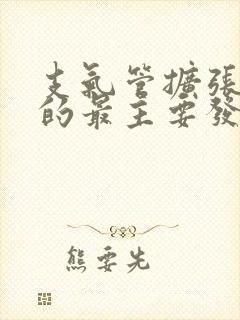 支氣管擴張
的最主要發
熊要先